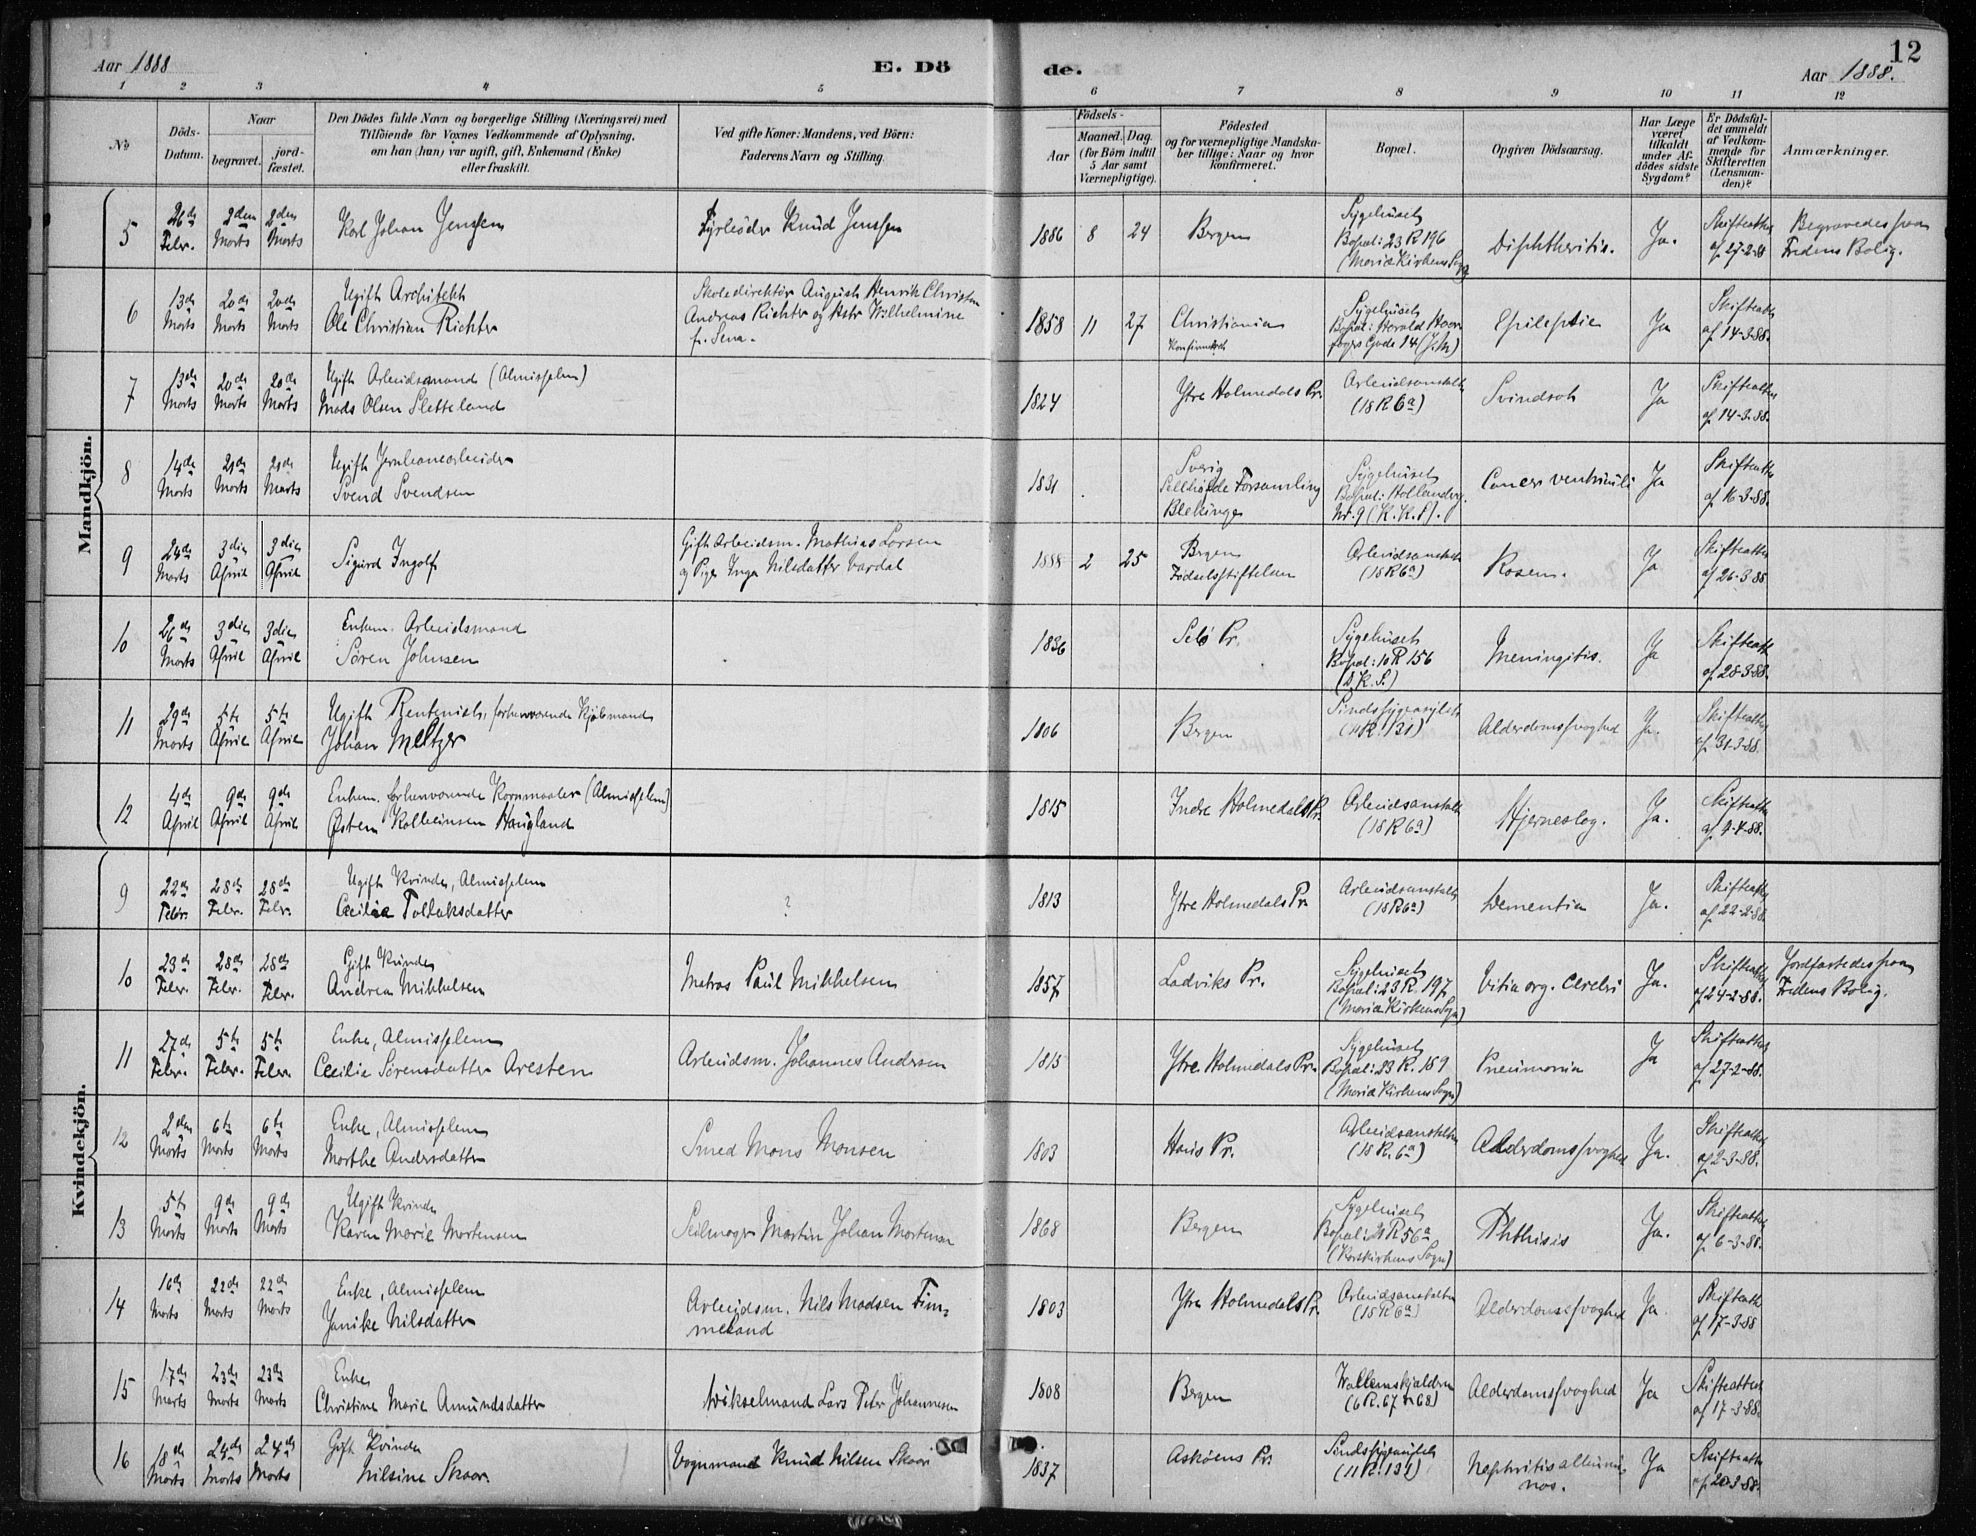 12
Aar 1888
E. Dö
de.
Aar 1888.
1 2 3 4 5 6 7 8 9 10 11 12
No
Döds-
Datum.
Naar
begravet.
jord-
fæstet.
Den Dödes fulde Navn og borgerlige Stilling (Næringsvei) med
Tilföiende for Voxnes Vedkommende af Oplysning,
om han (hun) var ugift, gift, Enkemand (Enke)
eller fraskilt.
Ved gifte Koner: Mandens, ved Börn:
Faderens Navn og Stilling.
Födsels-
Aar
Maaned.
Dag.
(for Börn indtil
5 Aar samt
Værnepligtige).
Födested
og for værnepligtige Mandska-
ber tillige: Naar og hvor
konfirmeret.
Bopæl.
Opgiven Dödsaarsag.
Har Læge
været
tilkaldt
under Af-
dödes sidste
Sygdom?
Er Dödsfal-
det anmeldt
af Vedkom-
mende for
Skifteretten
(Lensman-
den)?
Anmærkninger.
Mandkjön.
5
26de Febr.
2den Marts
2den Marts
Karl Johan Jenssen
Fyrbøder Knud Jenssen
1886 8 24
Bergen
Sygehuset
Bopæl: 23 R 196
(Mariæ Kirkens Sogn)
Diphtheritis.
Ja.
Skifteattest
af 27-2-88
Begravedes fra
Fredens Bolig.
6
13de Marts
20de Marts
20de Marts
Ugift Architekt
Ole Christian Richter
Skoledirektör August Henrik Christian
Andreas Richter og Hstr Wilhelmine
f. Sena.
1858 11 27
Christiania
Konfirmeret
Sygehuset
Bopæl: Harald Haar-
fagers Gade 14 (J.K.)
Epilepsie
Ja
Skifteattest
af 14-3-88.
7
13de Marts
20de Marts
20de Marts
Ugift Arbeidsmand (Almisselem)
Mads Olsen Sletteland
1824
Ytre Holmedals Pr.
Arbeidsanstalten
(18 R 6a)
Svindsot
Ja
Skifteattest
af 14-3-88.
8
14de Marts
21de Marts
21de Marts
Ugift Jernbanearbeider
Svend Svendsen
1831
Sverig
Forsamling
Blekinge
Sygehuset
Bopæl:
Nr. 9 (K. K. S).
Cancer ventriculi
Ja
Skifteattest
af 16-3-88.
9
24de Marts
3die April
3die April
Sigurd Ingolf
Gift Arbeidsm. Mathias Larsen
og Pige Inga Nilsdatter Vardal
1888 2 25
Bergen
Födselsstiftelsen
Arbeidsanstalten
(18 R 6a)
Rosen.
Ja
Skifteattest
af 26-3-88
10
26de Marts
3die April
3die April
Enkem. Arbeidsmand
Søren Johnsen
1836
Selö Pr.
Sygehuset
Bopæl: 10 R 156
(D. K. S.)
Meningitis.
Ja
Skifteattest
af 28-3-88.
11
29de Marts
5te April
5te April
Ugift Rentenist, forhenværende Kjöbmand
Johan Meltzer
1806
Bergen
Sindssygeasylet
(11 R. 131)
Alderdomssvaghed
Ja.
Skifteattest
af 31-3-88.
12
4de April
9de April
9de April
Enkem. forhenværende Kornmaaler (Almisselem)
Østen Kolbeinsen Haugland
1815
Indre Holmedals Pr.
Arbeidsanstalten
(18 R 6a)
Hjerneslag.
Ja.
Skifteattest
af 9-4-88.
Kvindekjön.
9
22de Febr.
28de Febr.
28de Febr.
Ugift Kvinde, Almisselem
Cecilie Tollaksdatter
?
1813
Ytre Holmedals Pr.
Arbeidsanstalten
(18 R 6a)
Dementia
Ja.
Skifteattest
af 22-2-88.
10
23de Febr.
28de Febr.
28de Febr.
Gift Kvinde
Andrea Mikkelsen
Matros Paul Mikkelsen
1857
Ladviks Pr.
Sygehuset
Bopæl: 23 R. 197
(Mariæ Kirkens Sogn)
Vitia org. Cerebri
Ja.
Skifteattest
af 24-2-88.
Jordfæstedes fra
Fredens Bolig.
11
27de Febr.
5te Febr.
5te Febr.
Enke, Almisselem
Cecilie Sørensdatter Aresten
Arbeidsm. Johannes Andersen
1815
Ytre Holmedals Pr.
Sygehuset
Bopæl: 23 R. 159
(Mariæ Kirkens Sogn)
Pneumonia
Ja
Skifteattest
af 27-2-88.
12
2den Marts
6te Marts
6te Marts
Enke, Almisselem
Marthe Andersdatter
Smed Mons Monsen
1803
Haus Pr.
Arbeidsanstalten
(18 R. 6a)
Alderdomssvaghed
Ja.
Skifteattest
af 2-3-88.
13
5te Marts
9de Marts
9de Marts
Ugift Kvinde
Karen Marie Mortensen
Seilmager Martin Johan Mortensen
1868
Bergen
Sygehuset
Bopæl: 21 R 56a
(Korskirkens Sogn)
Phthisis
Ja.
Skifteattest
af 6-3-88.
14
16de Marts
22de Marts
22de Marts
Enke, Almisselem
Janike Nilsdatter
Arbeidsm. Nils Madsen Fim-
meland
1803
Ytre Holmedals Pr.
Arbeidsanstalten
(18 R 6a)
Alderdomssvaghed
Ja
Skifteattest
af 17-3-88
15
17de Marts
23de Marts
23de Marts
Enke
Christine Marie Amundsdatter
Lars Peter Johannesen
1808
Bergen
(6 R. 67 & 68)
Alderdomssvaghed
Ja
Skifteattest
af 17-3-88.
16
18de Marts
24de Marts
24de Marts
Gift Kvinde
Nilsine Skaar
Vognmand Knud Nilsen Skaar
1837
Askøens Pr.
Sindssygeasylet
(11 R. 131)
Nephritis albumi-
nos.
Ja
Skifteattest
af 20-3-88.